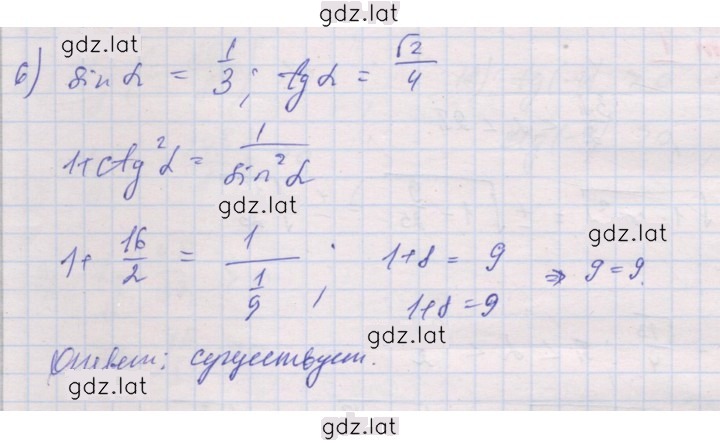 gdz.lat
gdz.lat
б) sin α = 1/3; tg α = √2/4
1+ctg²α = 1/sin²α
gdz.lat
1+ 16/2 = 1/(1/9); 1+8 = 9 ⇒ 9=9.
gdz.lat
1+8=9
gdz.lat
Ответ: существует.
gdz.lat
gdz.lat